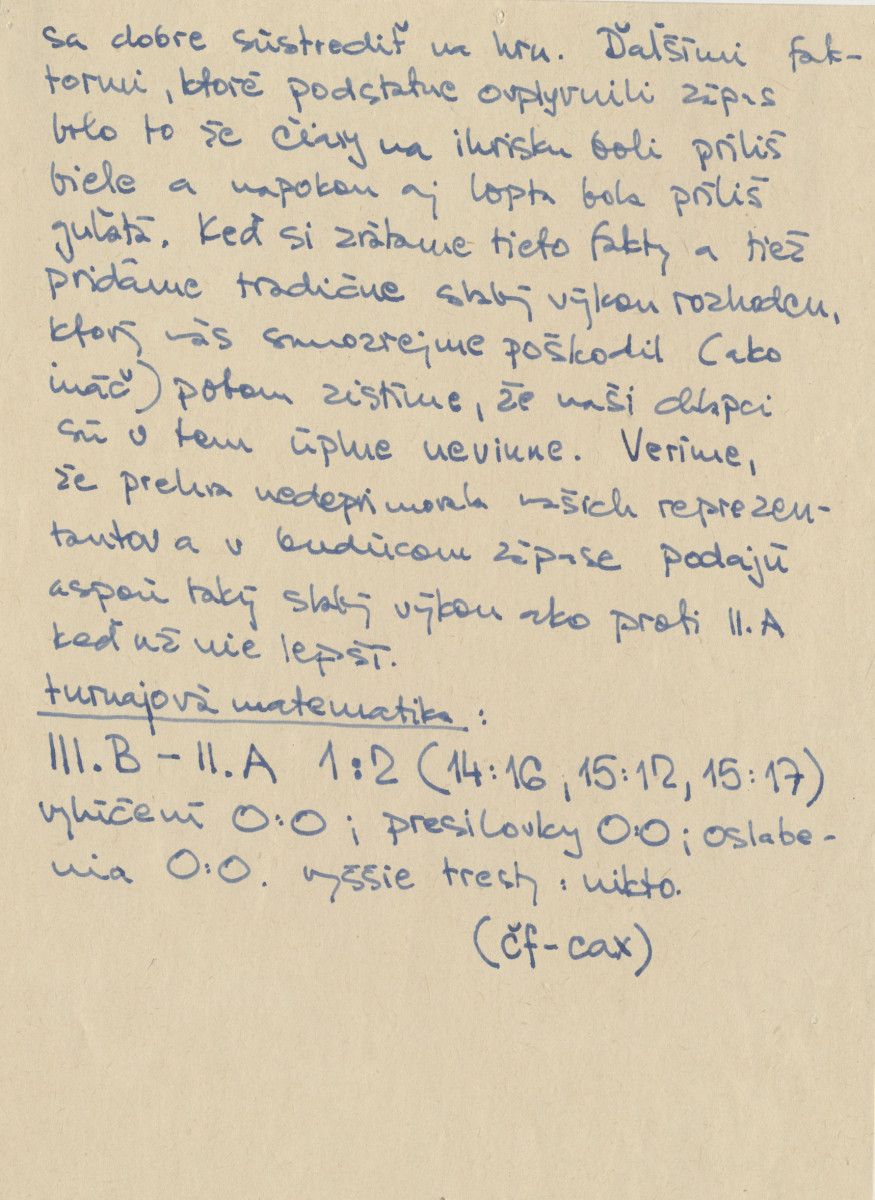 sa dobre sústrediť na hru. Ďaľšími fak-
tormi, ktoré podstatne ovplyvnili zápas
bolo to že čiary na ihrisku boli príliš
biele a napokon aj lopta bola príliš
guľatá. Keď si zrátame tieto fakty a tiež
pridáme tradične slabý výkon rozhodcu,
ktorý nás samozrejme poškodil (ako
ináč) potom zistíme, že naši chlapci
sú v tom úplne nevinne. Veríme,
že prehra nedeprimovala našich reprezen-
tantov a v budúcom zápase podajú
aspoň taký slabý výkon ako proti II.A
keď už nie lepší.
turnajová matematika :
III.B - II.A 1:2 (14:16, 15:12, 15:17)
vylúčení 0:0 ; presilovky 0:0 ; oslabe-
nia 0:0. vyššie tresty : nikto.
(čf-cax)